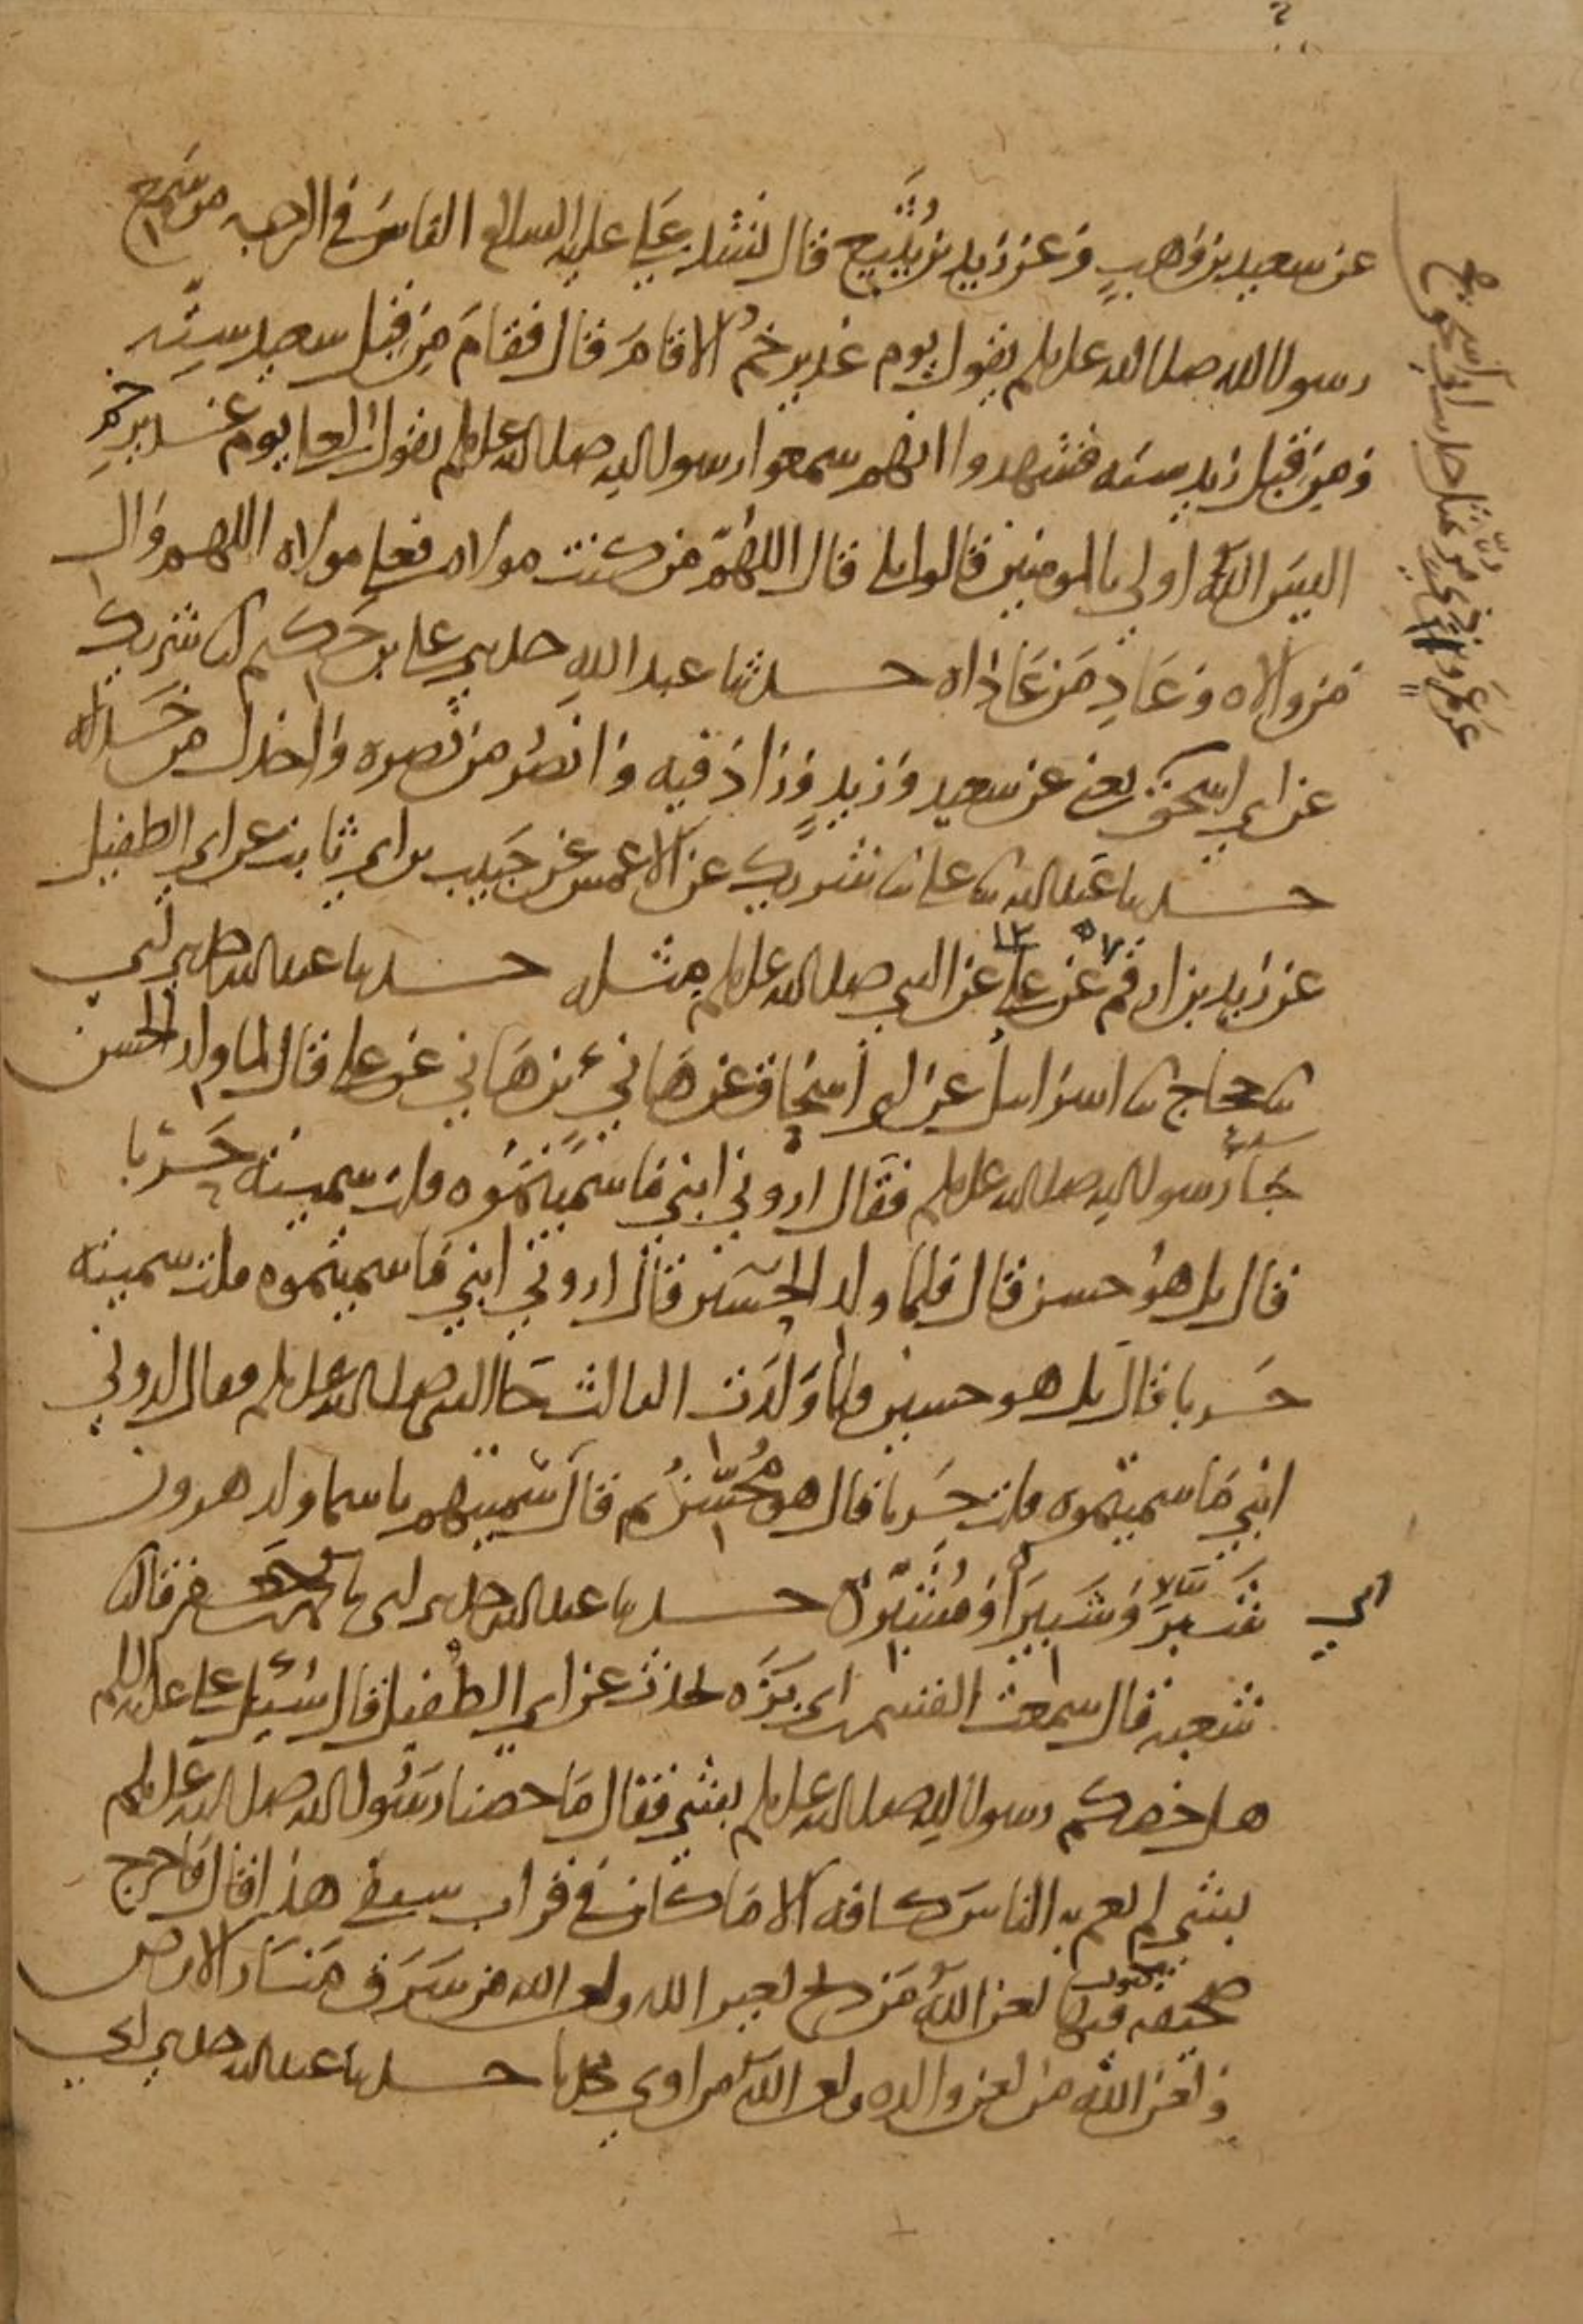 عن سعيد بن وهب وعن زيد بن يُثَيع قال نشد علي عليه السلام الناسَ في الرحبه من سمع
رسول الله صلى الله عليه وسلم يقول يوم غدير خم الا قامَ قال فقامَ من قِبَل سعيد ستّه
ومن قِبَل زيد سته فشهدوا انهم سمعوا رسول الله صلى الله عليه وسلم يقول لعلي يوم غدير خم
اليسَ اللهُ اولى بالمومنين قالوا بلى قال اللهُمّ من كنت مولاه فعلي مولاه اللهم وال
من والاه وعَادِ مَن عَاداه حدثنا عبد الله حدثني علي بن حَكيم انا شريك
عن ابي اسحق يعني عن سعيد وزيدٍ وزاد فيه وانصُر من نصره واخذل من خَذَله
حدثنا عبد الله ثنا علي ثنا شريك عن الاعمش عن حَبيب بن ابي ثابت عن ابي الطفيل
عن زيد بن ارقم عن علي عن النبي صلى الله عليه وسلم مثله حدثنا عبد الله حدثني ابي
ثنا حجاج ثنا اسرائيل عن ابي اسحاق عن هَانيء بن هَاني عن علي قال لما ولد الحسن
جَاء رسول الله صلى الله عليه وسلم فقال اروني ابني مَا سَمَّيتمُوه قلت سميته حَربا
قال بل هوُ حسن قال فلما ولد الحسَين قال اروني ابني مَا سميتموه قلت سميته
حَربا قال بل هو حسين فلما وَلَدَت الثالث جَا النبي صلى الله عليه وسلم فقال اروني
ابني مَا سميتموه قلت حَربا قال هو مُحَسِّنٌ ثم قال سَمّيتهم باسما ولد هرون
شَبَّرَ وَشَبيرَ وَمُشَبَّرٌ حدثنا عبد الله حدثني ابي ثنا محمد بن جَعفر قال ثنا
ابي
شعبه قال سمعت القسم بن ابي بَزَّه يحدث عن ابي الطُفيل قال سُئِل علي عليه السلام
هل خصكم رسول الله صلى الله عليه وسلم بشي فقال مَا خصنا رسُول الله صلى الله عليه وسلم
بشي لم يعم به الناسَ كافه الا مَا كان في قراب سيفي هذا قال فاخرج
صحيفه مكتوب فيها لعن اللهُ مَن ذبح لغير الله ولعن الله من سَرَق مَنَار الارض
ولعن الله من لعن والده ولعن اللهُ من اوى محدثا حدثنا عبد الله حدثني ابي